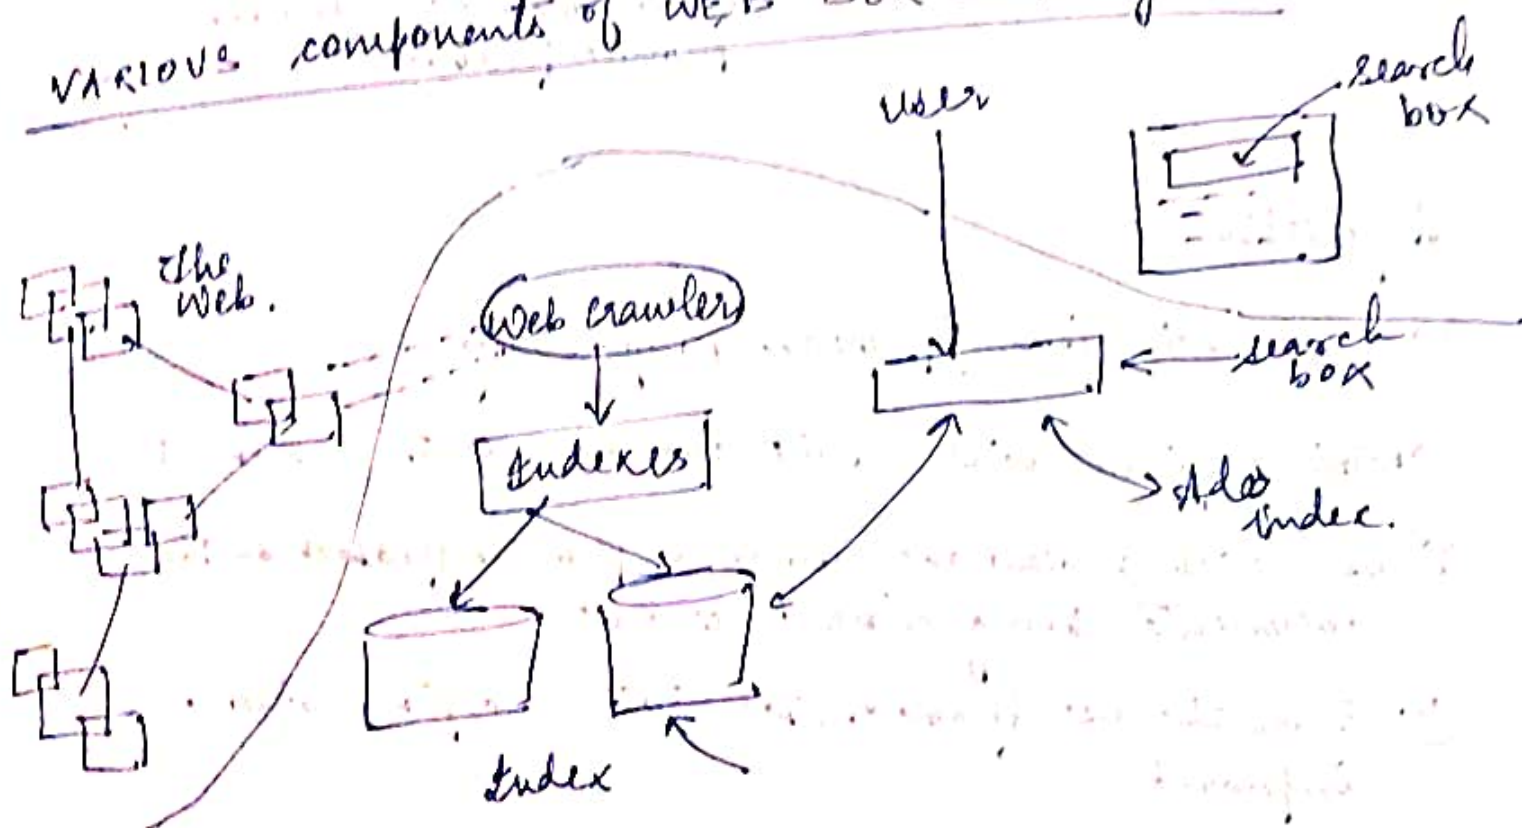 VARIOUS components of WEB
user
search
box
The
Web.
Web crawler
search
box
Indexes
index.
Index